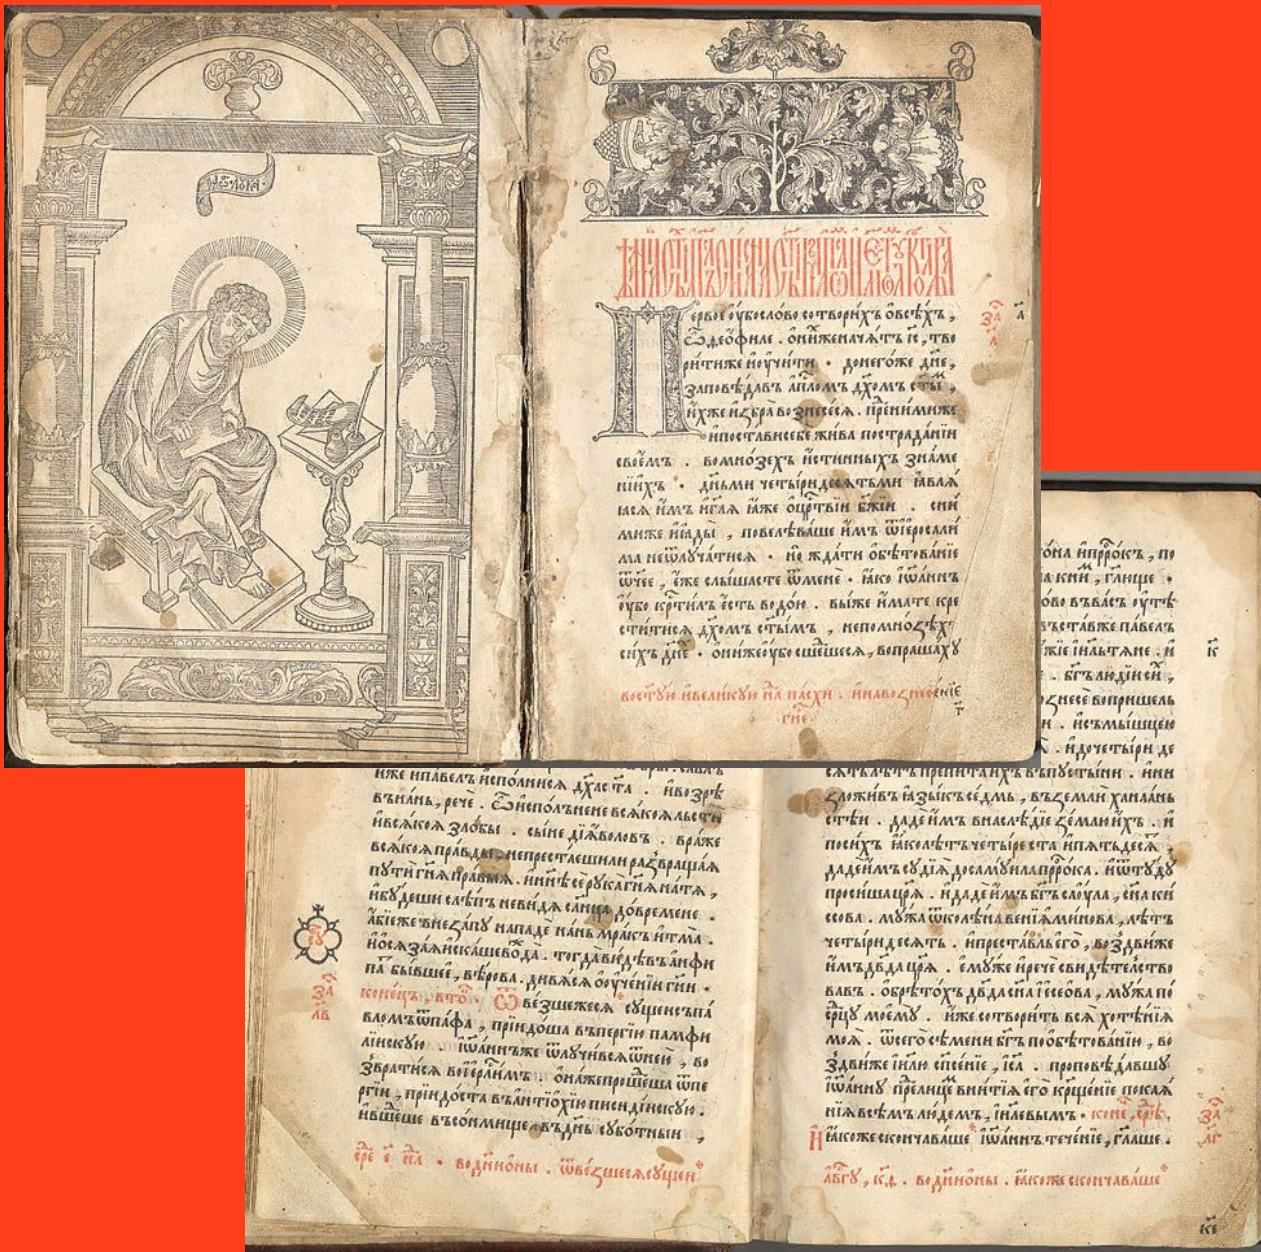 Первое ѹ҆бо сло́во сотвори́хъ ѡ҆ всѣ́хъ ,
ѽ ѳео́филе . ѡ҆ ни́хже нача́тъ і҆с҃ , тво
ри́ти же и҆ ѹ҆чи́ти . до него́же дн҃е ,
заповѣ́давъ а҆пⷭ҇ломъ дх҃омъ ст҃ы́м ,
и҆́хже и҆ꙁбра̀ воꙁнесе́сѧ . пре́ними же
и҆ поста́ви себѐ жи́ва по страда́нїи
свое́мъ . во мно́зехъ и҆́стинныхъ зна́ме
нїихъ . дн҃ьми четы́ридесѧтьми ꙗ҆влѧ́
ꙗсѧ и҆̀мъ и҆ гл҃ѧ ꙗ҆́же ѡ҆ црⷭ҇твїи бж҃їи . с ни́
ми же и҆ ꙗ҆ды̀ , повелѣва́ше и҆̀мъ ѿ і҆ероса́ли
ма не ѿлуча́тисѧ . но̀ жда́ти ѡ҆бѣтова́нїе
ѻ҆́ч҃ее , е҆́же слы́шасте ѿ менѐ . ꙗ҆́ко і҆ѡ҆́аннъ
ѹ҆́бо крⷭ҇ти́лъ є҆́сть водо́ю . вы́ же и҆́мате кре
сти́тисѧ дх҃омъ ст҃ы́мъ , не по мно́ꙁѣхъ
си́хъ дн҃е . ѡ҆ни́ же ѹ҆́бо сше́дшесѧ , вопраша́ху
в ст҃у́ю и҆ вели́кую нл҃ пасхи . и҆ на воꙁнесе́нїе
гн҃е
за҃
а҃
а҃
иже и҆ па́велъ и҆спо́лнисѧ дх҃а ст҃а . и҆ воꙁрѣ́
въ на́нь , речѐ . ѽ и҆спо́лънене всѧ́коѧ льстѝ
и҆ всѧ́коѧ ꙁло́бы . сы́не дїа́воловъ . вра́же
всѧ́коѧ пра́вды , не преста́еши ли раꙁвраща́ѧ
путѝ гн҃ѧ пра́выѧ . и҆ ны́нѣ сѐ рука̀ гн҃ѧ на тѧ̀ ,
и҆ бу́деши слѣ́пъ не ви́дѧ сл҃нца до́ времене .
а҆́бїе же внеꙁа́пу нападѐ на́нь мра́къ и҆ тма̀ .
и҆ ѻ҆сѧꙁа́ѧ и҆ска́ше вожда̀ . тогда̀ ви́дѣвъ а҆нфи
па́тъ бы́вшее , вѣ́рова . дивѧ́сѧ ѡ҆ ѹ҆че́нїи гн҃и .
коне́цъ , вто́ . Ѿвеꙁшежесѧ су́щеи съ па́
вломъ ѿ па́фа , прїидо́ша въ перги́ю памфи
лі́искую . і҆ѡ҆́аннъ же ѿлучи́всѧ ѿ нею̀ , во
ꙁврати́сѧ во і҆ерⷭ҇ли́мъ . ѡ҆на́ же проше́дша ѿ пе
рги́и , прїидо́ста въ а҆нтїохі́ю писиді́искую .
и҆ вше́дше въ со́нмище въ дн҃ь субо́тныи ,
є҆рⷭ҇е є҃ нл҃ . во дн҃и ѻ҆́ны . ѿвеꙁшесѧ су́щеи
за҃
лв҃
ѻ҆́на и҆ прⷪ҇ро́къ , по
гл҃юще .
о́во въ ва́съ ѹ҆тѣ
ъста́въ же па́велъ
жїе і҆и҃льтѧне . и
. бг҃ъ лю́діи си́хъ ,
оꙁнесѐ во прише́ль
и . и҆ съ мы́шцею
. и҆ до четы́риде
сѧтъ лѣ́тъ препита̀ и҆́хъ въ пусты́ни . и҆ ни
ꙁложи́въ ꙗ҆ꙁы́къ се́дмь , въ ꙁемлѝ хана́ань
стѣ́и . дадѐ и҆́мъ в наслѣ́дїе ꙁе́млю и҆́хъ . и
по си́хъ ꙗ҆́ко лѣ́тъ четы́реста и҆ пѧтьдесѧ́ ,
дадѐ и҆́мъ судїѧ̀ до самуи́ла прⷪ҇ро́ка . и҆ ѿту́ду
проси́ша цр҃ѧ̀ . и҆ дадѐ и҆́мъ бг҃ъ сау́ла , сн҃а ки́
сова . му́жа ѿ колѣ́на венїами́нова , лѣ́тъ
четы́ридесѧть . и҆ преста́вль є҆го̀ , воꙁдви́же
и҆́мъ дв҃да цр҃ѧ̀ . є҆му́же и҆ речѐ свидѣ́телство
вавъ . ѡ҆брѣто́хъ дв҃да сн҃а і҆есе́ова , му́жа по
ср҃цу моє́му . и҆́же сотвори́тъ всѧ̀ хотѣ́нїѧ
моѧ̀ . ѿ сего̀ сѣ́мени бг҃ъ по ѡ҆бѣтова́нїю , во
ꙁдви́же і҆и҃лю спⷭ҇е́нїе , і҆с҃а . проповѣ́давшу
і҆ѡ҆́анну пре́д лице́мъ внитїѧ̀ є҆го̀ крⷳ҇ще́нїе покаѧ́
нїѧ всѣ́мъ лю́демъ , і҆и҃левымъ . коне́ , є҆рⷭ҇е́ .
И҆ ꙗ҆́коже сконча́ваше і҆ѡ҆́аннъ тече́нїе , гл҃аше .
а҆́вгу , к҃д . во дн҃и ѻ҆́ны . ꙗ҆́коже сконча́ваше
к҃
за҃
лг҃
к҃е